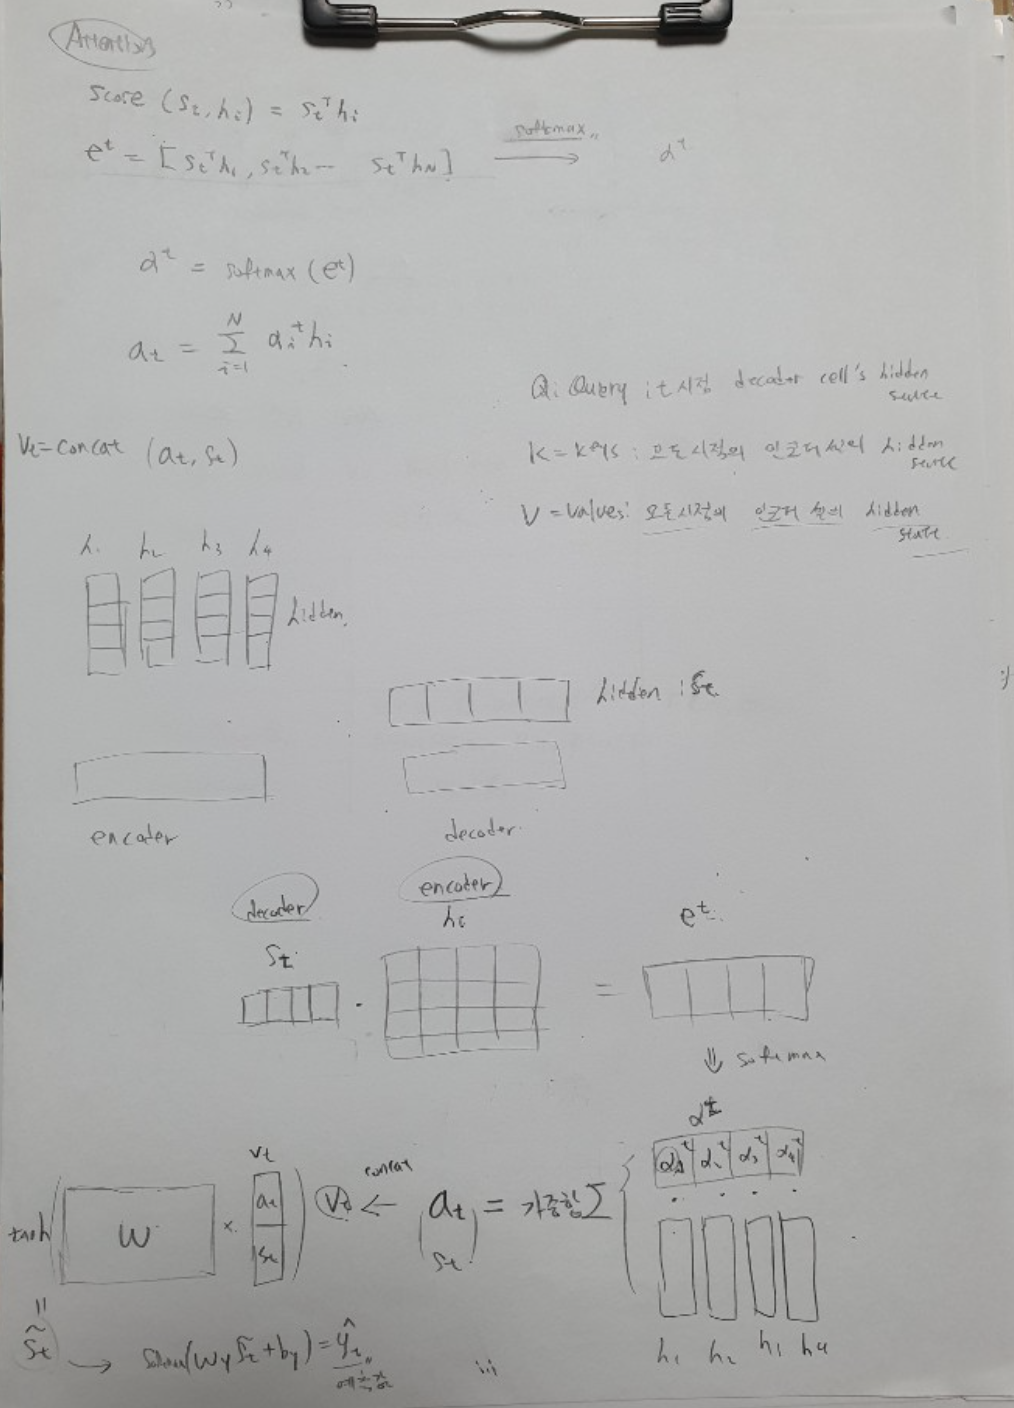 Attention
score (sₜ, hᵢ) = sₜᵀhᵢ
eᵗ = [sₜᵀh₁, sₜᵀh₂ --- sₜᵀh_N] softmax,, → αᵗ
αᵗ = softmax (eᵗ)
aₜ = Σ αᵢᵗhᵢ
N
i=1
Q: Query : t시점 decoder cell's hidden
state
Vₜ=concat (aₜ, sₜ)
K = keys : 모든 시점의 인코더 셀의 hidden
state
V = values: 모든 시점의 인코더 셀의 hidden
state
h₁ h₂ h₃ h₄
hidden
hidden : sₜ
encoder decoder
decoder encoder
sₜ hᵢ eᵗ
· =
⇓ softmax
αᵗ
α₁ᵗ α₂ᵗ α₃ᵗ α₄ᵗ
tanh ( W × vₜ aₜ sₜ ) Vₜ ← concat (aₜ sₜ) = 가중합 Σ {
. . . .
h₁ h₂ h₁ h₄
=
s̃ₜ → (Wy s̃ₜ + by) = ŷₜ
예측값